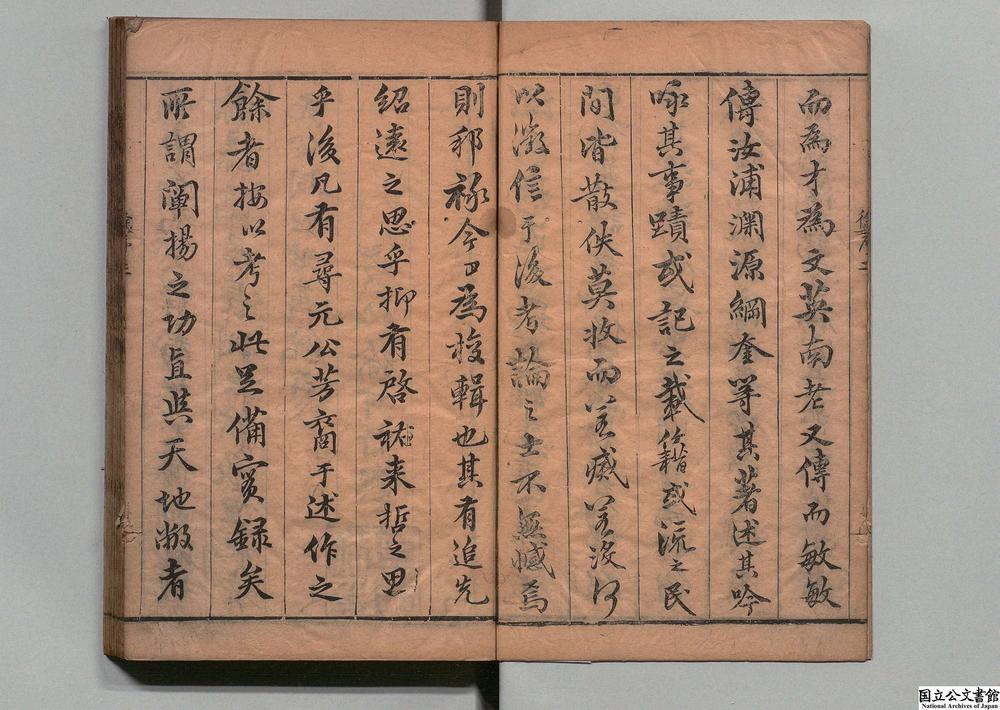 而為才為文英南老又傳而敏敏
傳汝浦渊源綱奎等其著述其吟
咏其事蹟或記之載籍或流之民
間皆散佚莫收而若臧若没何
以徵信于後者論之士不無憾焉
則邪祿今日為授輯也其有追先
紹遠之思乎抑有啓祐来哲之思
乎後凡有尋元公芳裔于述作之
餘者按以考之此足備實録矣
所謂闡揚之功直與天地敝者
国立公文書館
National Archives of Japan